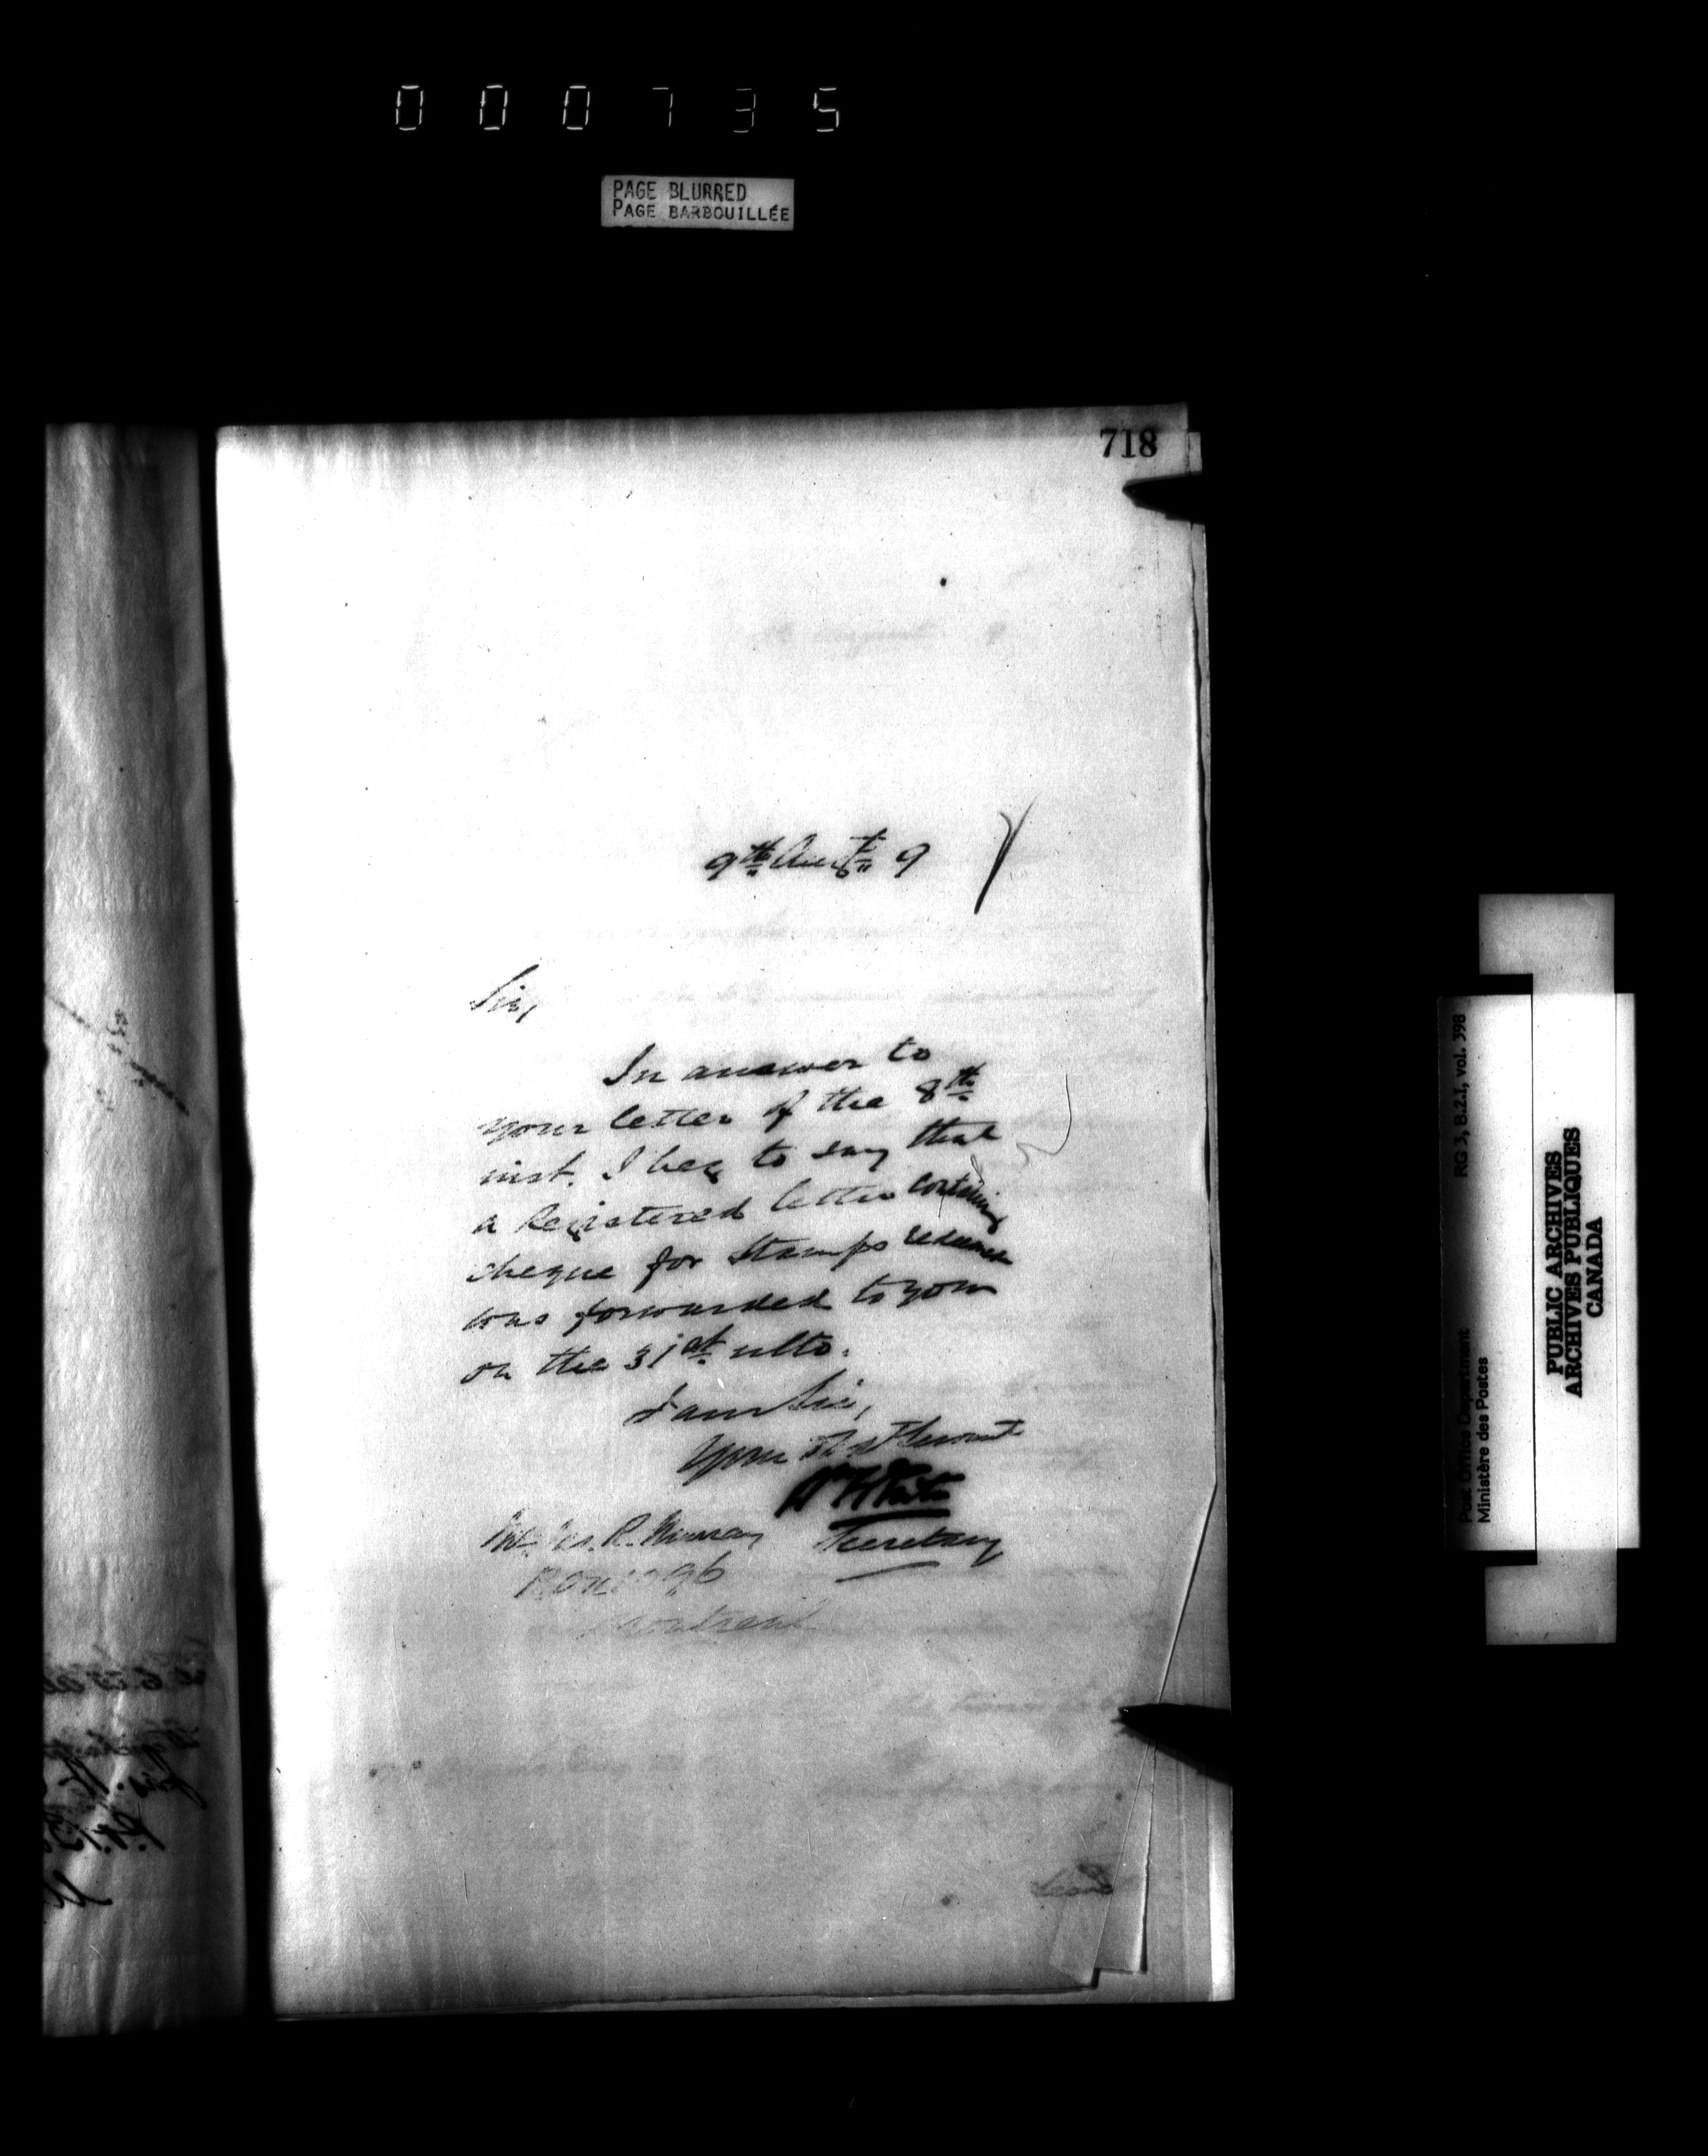 000735
PAGE BLURRED
PAGE BARBOUILLÉE
718
9th Augt 9
Sir,
In answer to
your letter of the 8th
inst. I beg to say that
a Registered letter containing
cheque for Stamps
was forwarded to you
on the 31st ulto.
I am Sir,
Your Obt Servant
Secretary
R. Murray
Box
Montreal
RG 3, B.2.1, vol. 398
Post Office Department
Ministère des Postes
PUBLIC ARCHIVES
ARCHIVES PUBLIQUES
CANADA